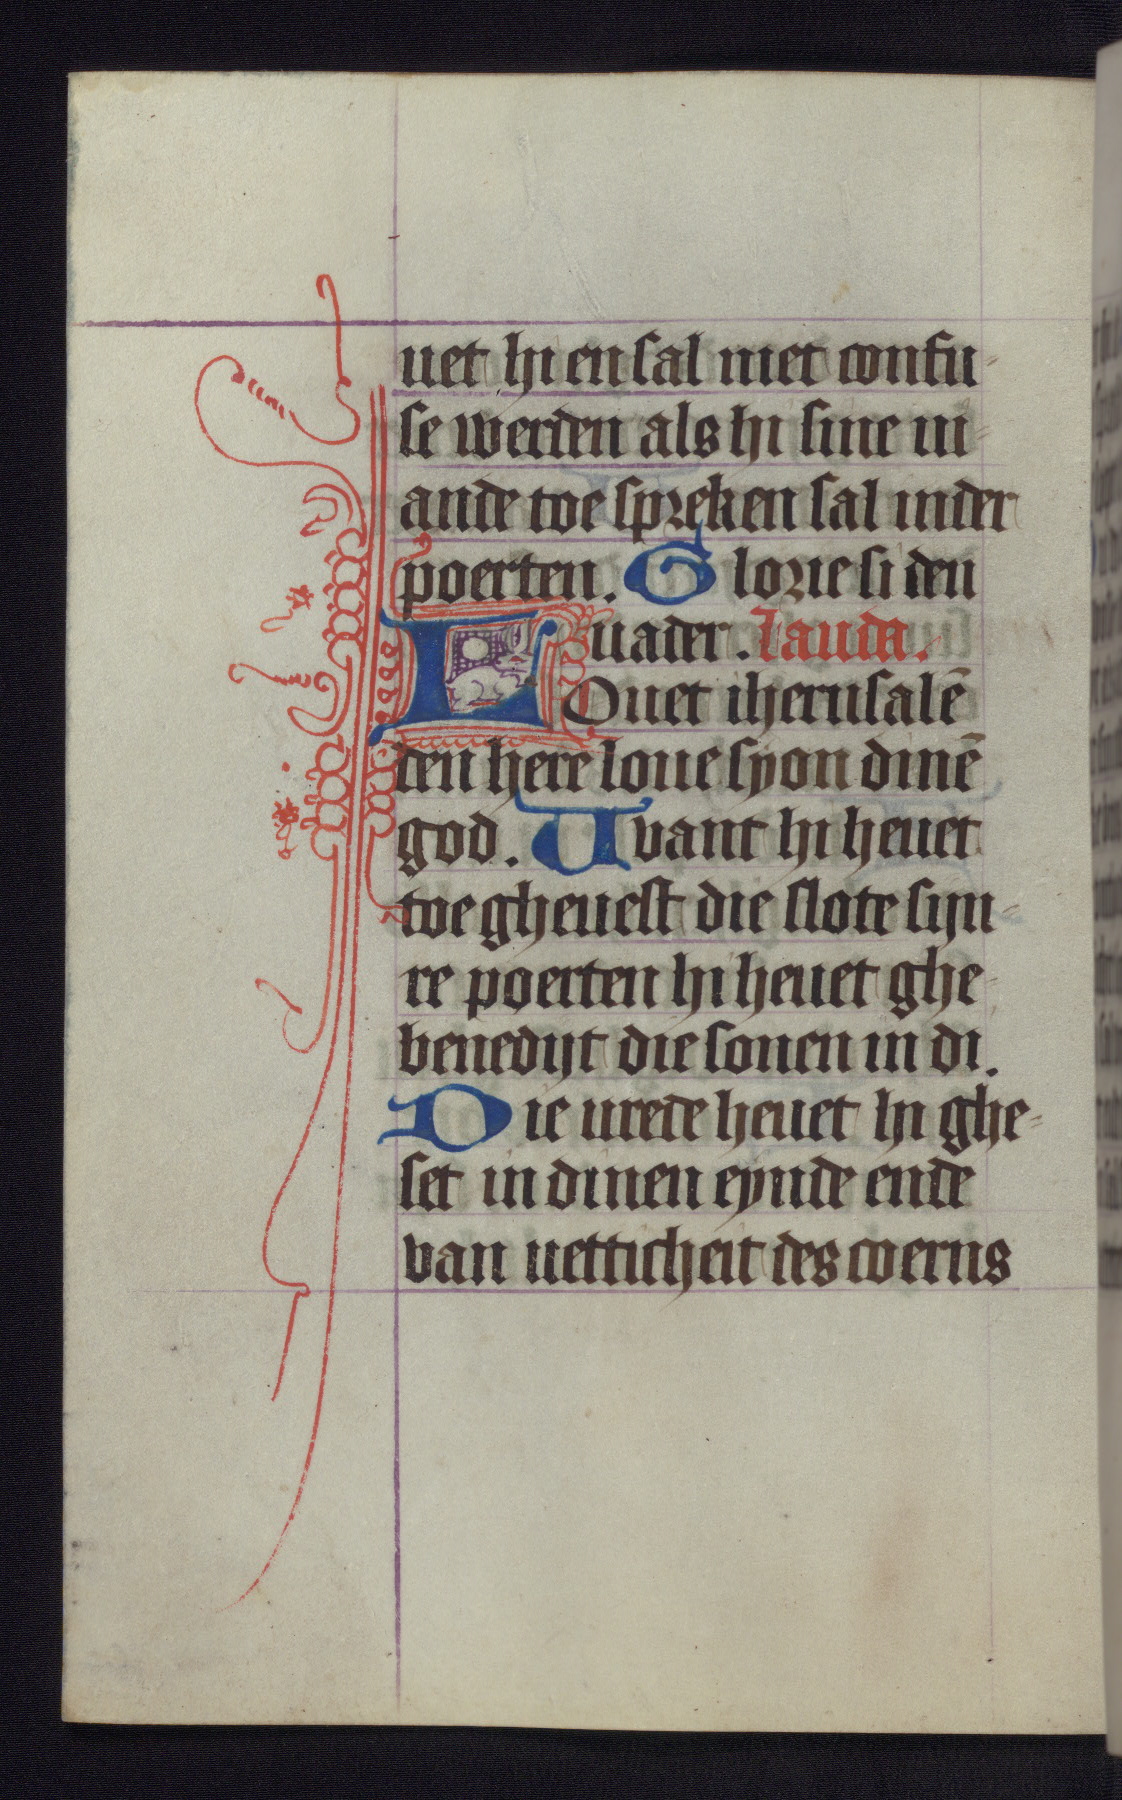 uet hi en sal niet confu-
se werden als hi sine vi-
ande toe spreken sal inder
poerten. Glorie si den
uader. Lauda.
LOuet iherusalē
den here loue syon dinē
god. Uvant hi heuet
toe gheuest die slote sijn-
re poerten hi heuet ghe-
benedijt die sonen in di.
Die urede heuet hi ghe-
set in dinen eynde ende
van uetticheit des coerns